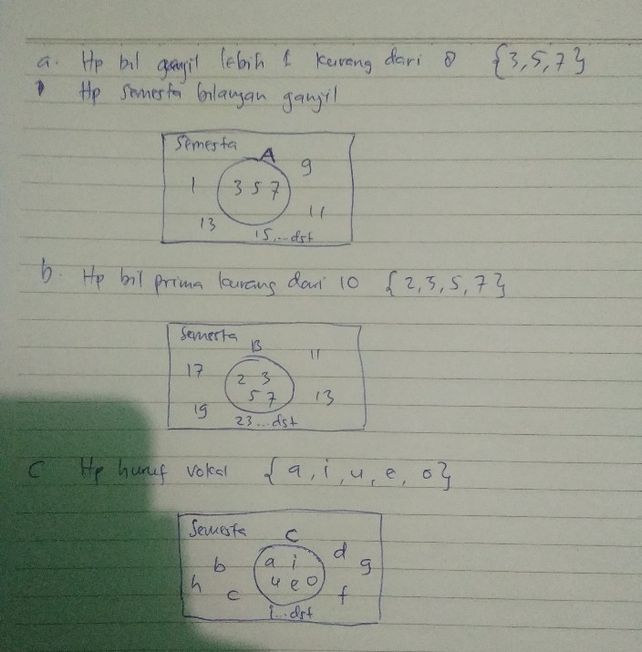 a. Hp bil ganjil lebih 1 kurang dari 8 {3, 5, 7}
Hp Semesta bilangan ganjil
Semesta
A
9
1
3 5 7
13
11
15...dst
b. Hp bil prima kurang dari 10 {2, 3, 5, 7}
Semesta
B
11
17
2 3
5 7
13
19
23...dst
C Hp huruf vokal {a, i, u, e, o}
Semesta
C
d
b
a i
g
h
u e o
c
f
j...dst